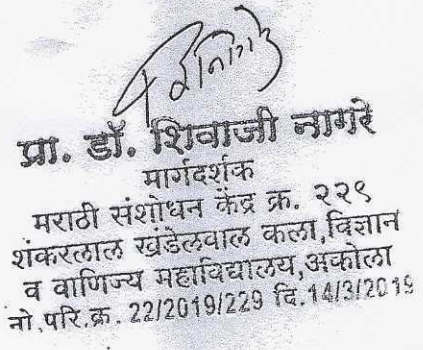 प्रा. डॉ. शिवाजी नागरे
मार्गदर्शक
मराठी संशोधन केंद्र क्र. २२९
शंकरलाल खंडेलवाल कला,विज्ञान
व वाणिज्य महाविद्यालय,अकोला
नो.परि.क्र. 22/2019/229 दि.14/3/2019